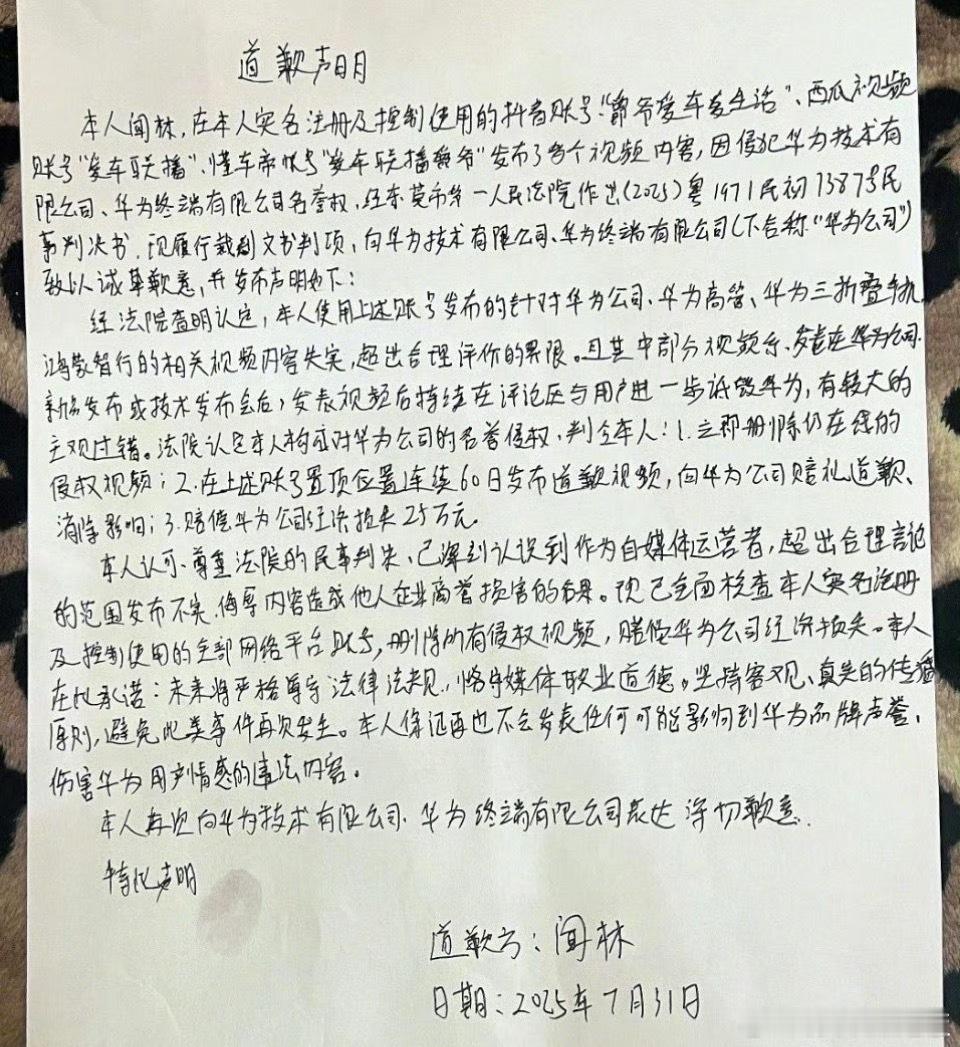 道歉声明
本人闻林,在本人实名注册及控制使用的抖音账号“爵爷爱车爱生活”、西瓜视频
账号“爱车联播”、懂车帝帐号“爱车联播爵爷”发布了多个视频内容,因侵犯华为技术有
限公司、华为终端有限公司名誉权,经东莞市第一人民法院作出(2025)粤1971民初7387号民
事判决书,现履行裁判文书判项,向华为技术有限公司、华为终端有限公司(下合称“华为公司”)
致以诚挚歉意,并发布声明如下:
经法院查明认定,本人使用上述账号发布的针对华为公司、华为高管、华为三折叠手机
鸿蒙智行的相关视频内容失实,超出合理评价的界限。且其中部分视频系发告在华为公司
新品发布或技术发布会后,发表视频后持续在评论区与用户进一步诋毁华为,有较大的
主观过错。法院认定本人构成对华为公司的名誉侵权,判令本人:1.立即删除仍存续的
侵权视频;2.在上述账号置顶位置连续60日发布道歉视频,向华为公司赔礼道歉、
消除影响;3.赔偿华为公司经济损失25万元。
本人认可、尊重法院的民事判决,已深刻认识到作为自媒体运营者,超出合理言论
的范围发布不实、侮辱内容造成他人企业商誉损害的后果。现已全面核查本人实名注册
及控制使用的全部网络平台账号,删除所有侵权视频,赔偿华为公司经济损失。本人
在此承诺:未来将严格遵守法律法规,恪守媒体职业道德。坚持客观、真实的传播
原则,避免此类事件再次发生。本人保证再也不会发表任何可能影响到华为品牌声誉、
伤害华为用户情感的违法内容。
本人再次向华为技术有限公司、华为终端有限公司表达深切歉意.
特此声明
道歉方:闻林
日期:2025年7月31日